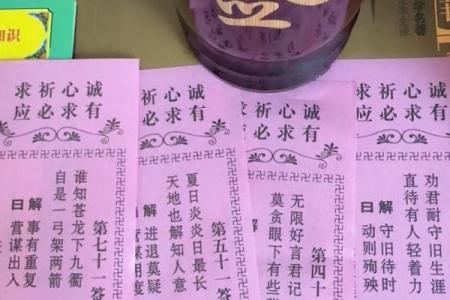 知识
学名著
诚心祈求
有求必应
第七十一签
谁知苍龙下九衢
自是一弓架两箭
解曰
事有重复
营谋出入
诚心祈求
有求必应
第五十一签
夏日炎炎日最长
天地也解知人意
解
进退莫疑
诚心祈求
有求必应
第四十
无限好言君记
莫贪眼下有些
解
诚心祈求
有求必应
劝君耐守旧生涯
直待有人轻着力
解曰
守旧待时
动则殉殃